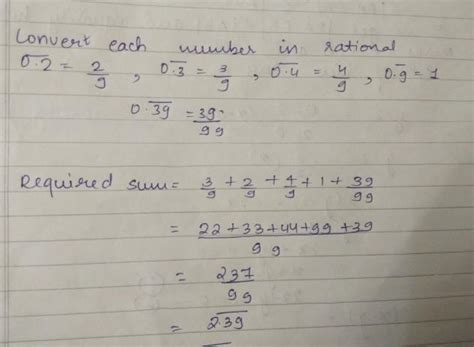 Convert each number in rational
0.2̅ = 2/9 , 0.3̅ = 3/9 , 0.4̅ = 4/9 , 0.9̅ = 1
0.3̅9̅ = 39/99
Required sum = 3/9 + 2/9 + 4/9 + 1 + 39/99
= 22+33+44+99+39/99
= 237/99
= 2.3̅9̅